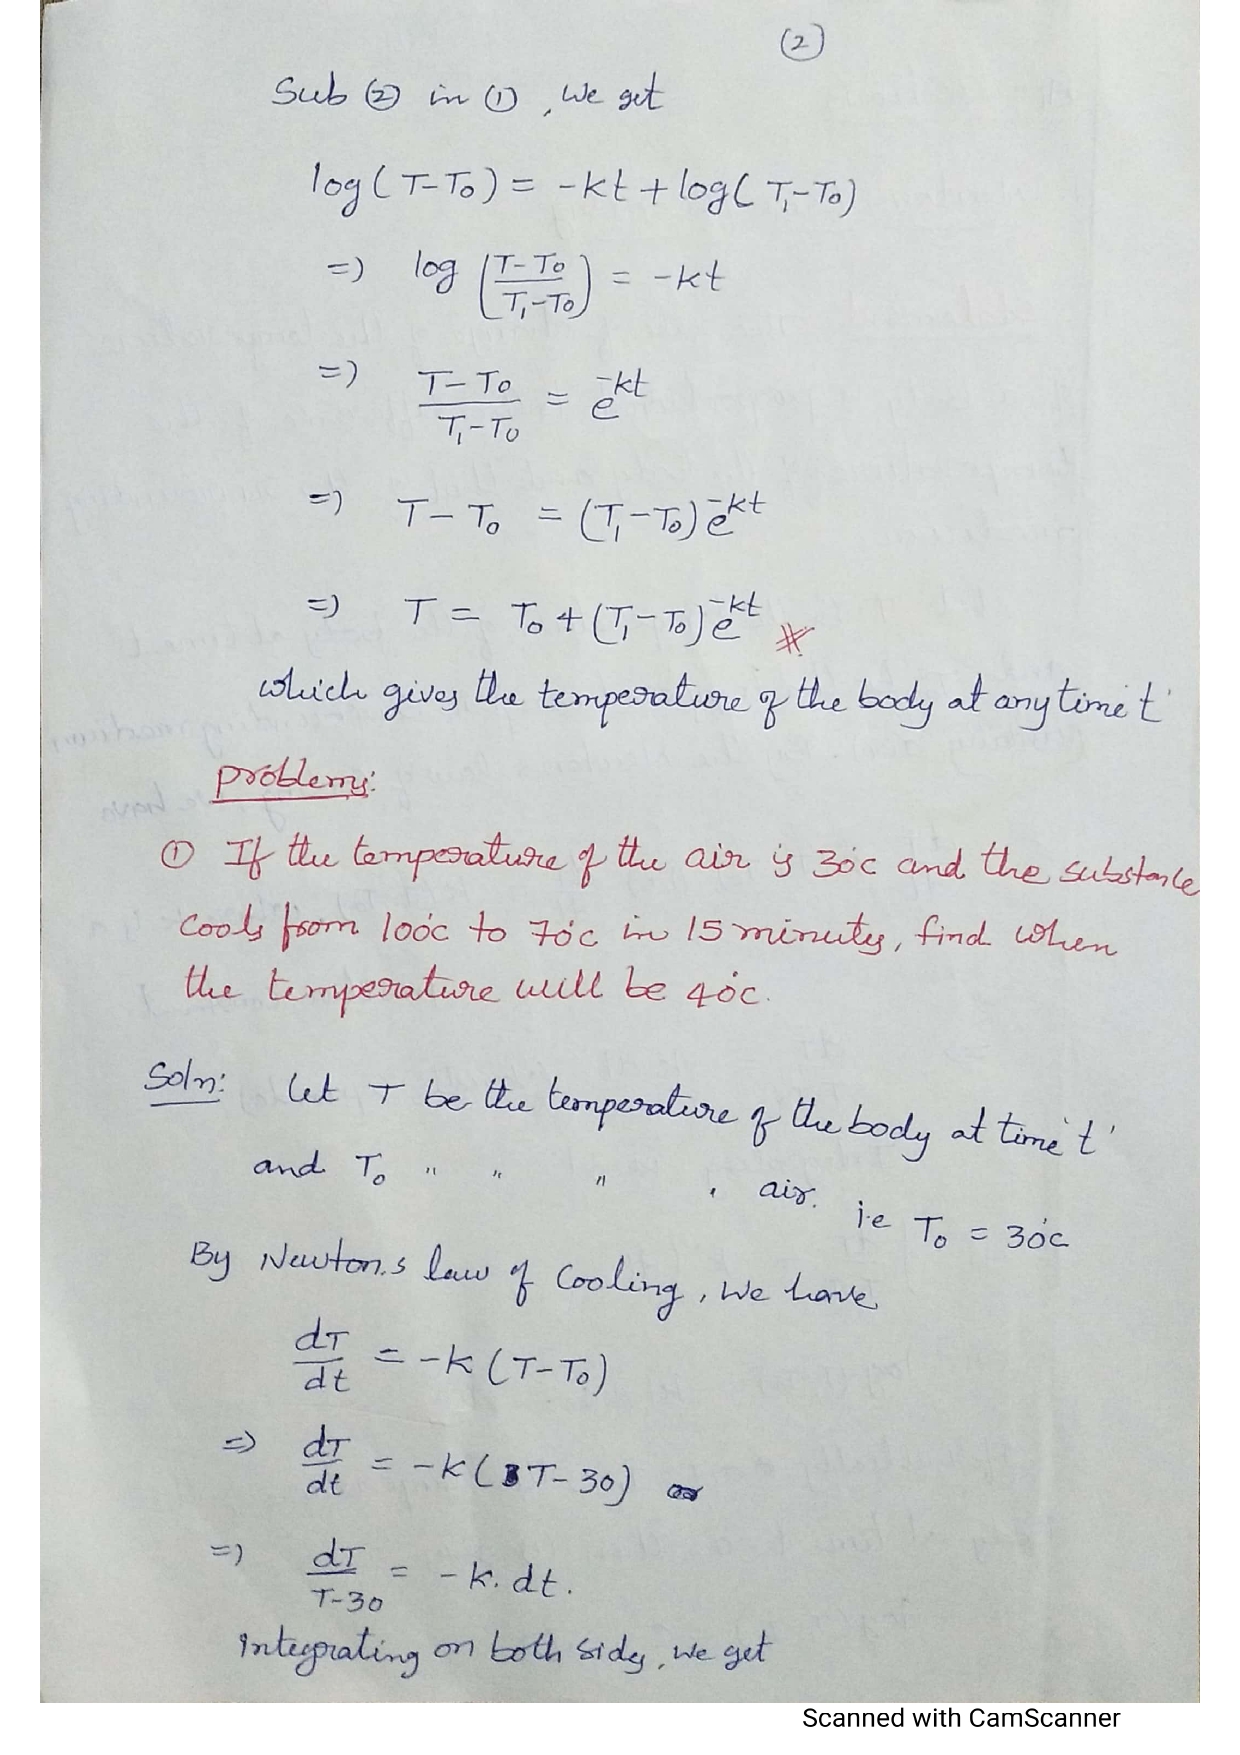 (2)
Sub (2) in (1), we get
log(T-T₀) = -kt + log(T₁-T₀)
=) log ((T-T₀)/(T₁-T₀)) = -kt
=) (T-T₀)/(T₁-T₀) = e^-kt
=) T-T₀ = (T₁-T₀)e^-kt
=) T = T₀ + (T₁-T₀)e^-kt
which gives the temperature of the body at any time 't'
problems:
(1) If the temperature of the air is 30°c and the substance
cools from 100°c to 70°c in 15 minutes, find when
the temperature will be 40°c.
Soln: Let T be the temperature of the body at time 't'
and T₀ " " " " air. i.e T₀ = 30°c
By Newton's law of cooling, we have
dT/dt = -k(T-T₀)
=> dT/dt = -k(T-30)
=) dT/(T-30) = -k. dt.
Integrating on both sides, we get
Scanned with CamScanner